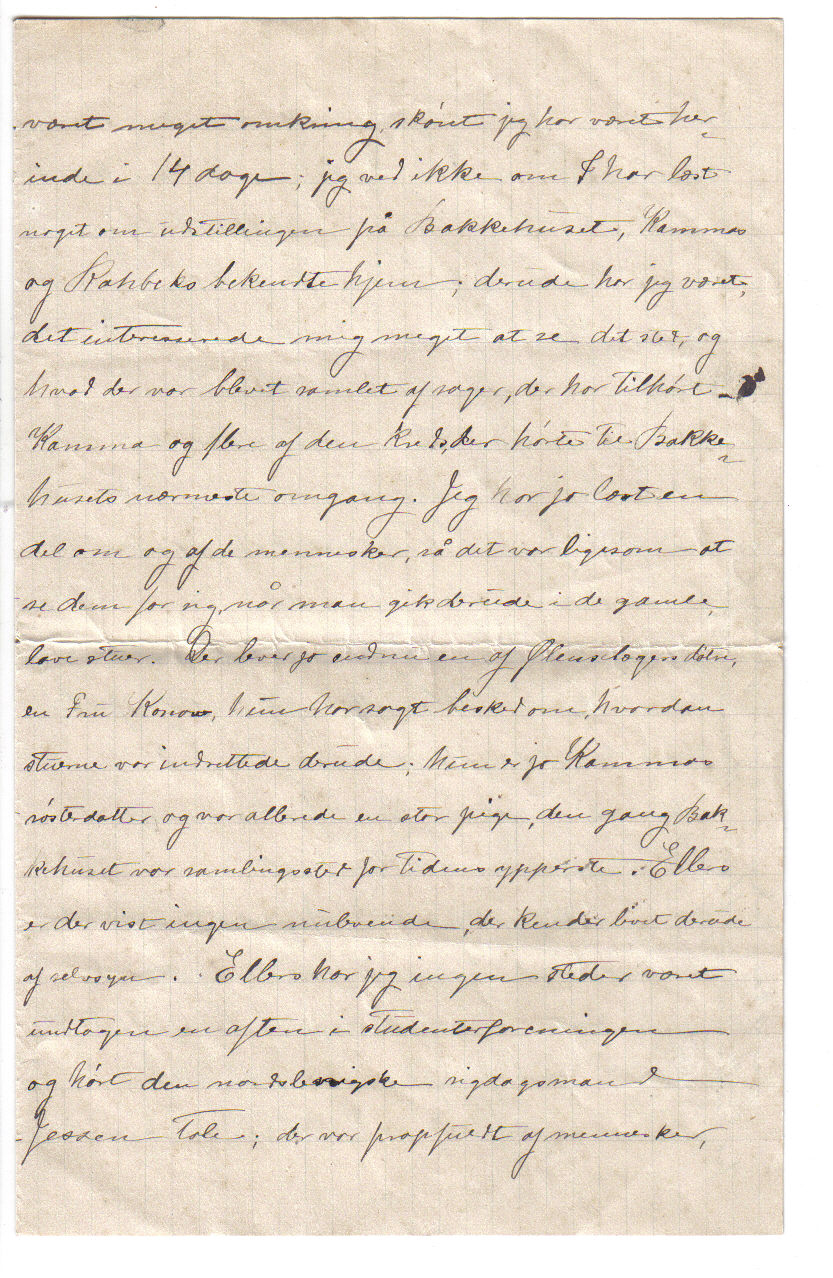 været meget omkring, skönt jeg har været her-
inde i 14 dage; jeg ved ikke om I har læst
noget om udstillingen på Bakkehuset, Kammas
og Rahbeks bekendte hjem; derude har jeg været,
det interesserede mig meget at se det sted, og
hvad der var blevet samlet af sager, der har tilhört
Kamma og flere af den kreds, der hörte til Bakke-
husets nærmeste omgang. Jeg har jo læst en
del om og af de mennesker, så det var ligesom at
se dem for sig, når man gik derude i de gamle,
lave stuer. Der lever jo endnu en af Ølenslagers dötre,
en Fru Konow, hun har sagt besked om, hvordan
stuerne var indrettede derude; hun er jo Kammas
sösterdatter og var allerede en stor pige, den gang Bak-
kehuset var samlingssted for tidens ypperste. Ellers
er der vist ingen nulevende, der kender livet derude
af selvsyn. Ellers har jeg ingen steder været
undtagen en aften i studenterforeningen
og hört den nordslevigske rigdagsmand
Jessen tale; der var propfuldt af mennesker,